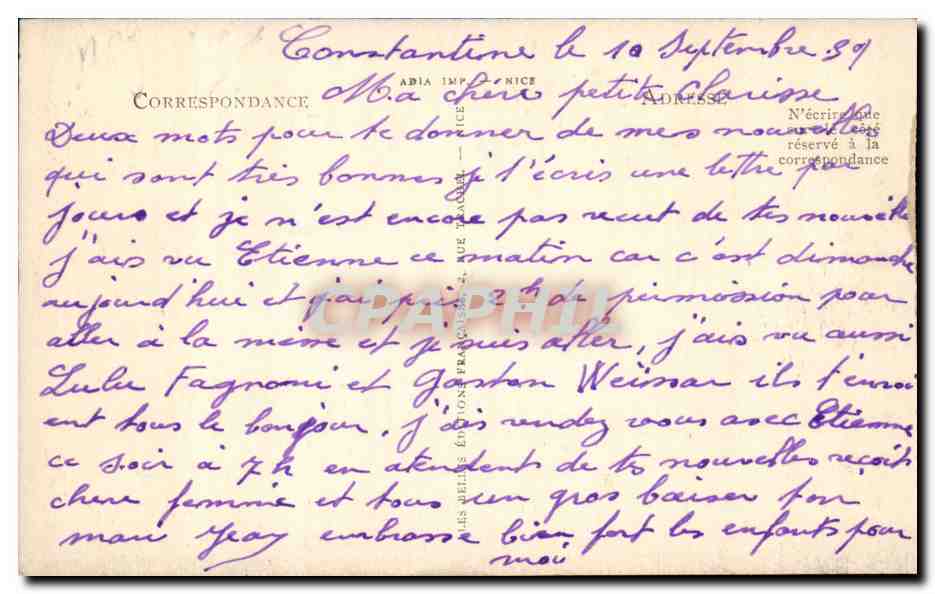 Constantine le 10 Septembre 39
ADIA IMP. NICE
CORRESPONDANCE
Ma chère petite Clarisse
ADRESSE
N'écrire que
sur le côté
réservé à la
correspondance
Deux mots pour te donner de mes nouvelles
qui sont très bonnes j t'écris une lettre par
jours et je n'est encore pas recut de tes nouvelle
j'ais vu Etienne ce matin car c'est dimanche
aujourd'hui et j'ai pris 2h de permission pour
aller à la messe et je suis aller, j'ais vu aussi
Lulu Fagnoni et Gaston Weissar ils t'envoi
ent tous le bonjour, j'ais rendez vous avec Etienne
ce soir à 7h en atendent de tes nouvelles reçoit
chere femme et tous un gros baiser ton
mari Jean embrasse bien fort les enfants pour
moi
LES BELLES ÉDITIONS FRANÇAISES, 2, RUE TRACHEL — NICE
CPAPHIL